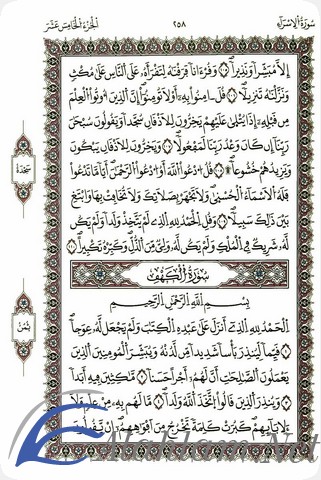 سُورَةُ الإِسْرَاءِ ٢٥٨ الجُزْءُ الخَامِسَ عَشَرَ
إِلَّا مُبَشِّرًا وَنَذِيرًا وَقُرْءَانًا فَرَقْنَٰهُ لِتَقْرَأَهُۥ عَلَى ٱلنَّاسِ عَلَىٰ مُكْثٍ
وَنَزَّلْنَٰهُ تَنزِيلًا قُلْ ءَامِنُوا۟ بِهِۦٓ أَوْ لَا تُؤْمِنُوٓا۟ إِنَّ ٱلَّذِينَ أُوتُوا۟ ٱلْعِلْمَ
مِن قَبْلِهِۦٓ إِذَا يُتْلَىٰ عَلَيْهِمْ يَخِرُّونَ لِلْأَذْقَانِ سُجَّدًا وَيَقُولُونَ سُبْحَٰنَ
رَبِّنَآ إِن كَانَ وَعْدُ رَبِّنَا لَمَفْعُولًا وَيَخِرُّونَ لِلْأَذْقَانِ يَبْكُونَ
وَيَزِيدُهُمْ خُشُوعًا قُلُ ٱدْعُوا۟ ٱللَّهَ أَوُ ٱدْعُوا۟ ٱلرَّحْمَٰنَ أَيًّا مَّا تَدْعُوا۟
فَلَهُ ٱلْأَسْمَآءُ ٱلْحُسْنَىٰ وَلَا تَجْهَرْ بِصَلَاتِكَ وَلَا تُخَافِتْ بِهَا وَٱبْتَغِ
بَيْنَ ذَٰلِكَ سَبِيلًا وَقُلِ ٱلْحَمْدُ لِلَّهِ ٱلَّذِى لَمْ يَتَّخِذْ وَلَدًا وَلَمْ يَكُن
لَّهُۥ شَرِيكٌ فِى ٱلْمُلْكِ وَلَمْ يَكُن لَّهُۥ وَلِىٌّ مِّنَ ٱلذُّلِّ وَكَبِّرْهُ تَكْبِيرًا
سُورَةُ الكَهْفِ
بِسْمِ ٱللَّهِ ٱلرَّحْمَٰنِ ٱلرَّحِيمِ
ٱلْحَمْدُ لِلَّهِ ٱلَّذِىٓ أَنزَلَ عَلَىٰ عَبْدِهِ ٱلْكِتَٰبَ وَلَمْ يَجْعَل لَّهُۥ عِوَجًا
قَيِّمًا لِّيُنذِرَ بَأْسًا شَدِيدًا مِّن لَّدُنْهُ وَيُبَشِّرَ ٱلْمُؤْمِنِينَ ٱلَّذِينَ
يَعْمَلُونَ ٱلصَّٰلِحَٰتِ أَنَّ لَهُمْ أَجْرًا حَسَنًا مَّٰكِثِينَ فِيهِ أَبَدًا
وَيُنذِرَ ٱلَّذِينَ قَالُوا۟ ٱتَّخَذَ ٱللَّهُ وَلَدًا مَّا لَهُم بِهِۦ مِنْ عِلْمٍ وَلَا
لِءَابَآئِهِمْ كَبُرَتْ كَلِمَةً تَخْرُجُ مِنْ أَفْوَٰهِهِمْ إِن يَقُولُونَ
سَجْدَة
ثُمُن
Alahlam.Net